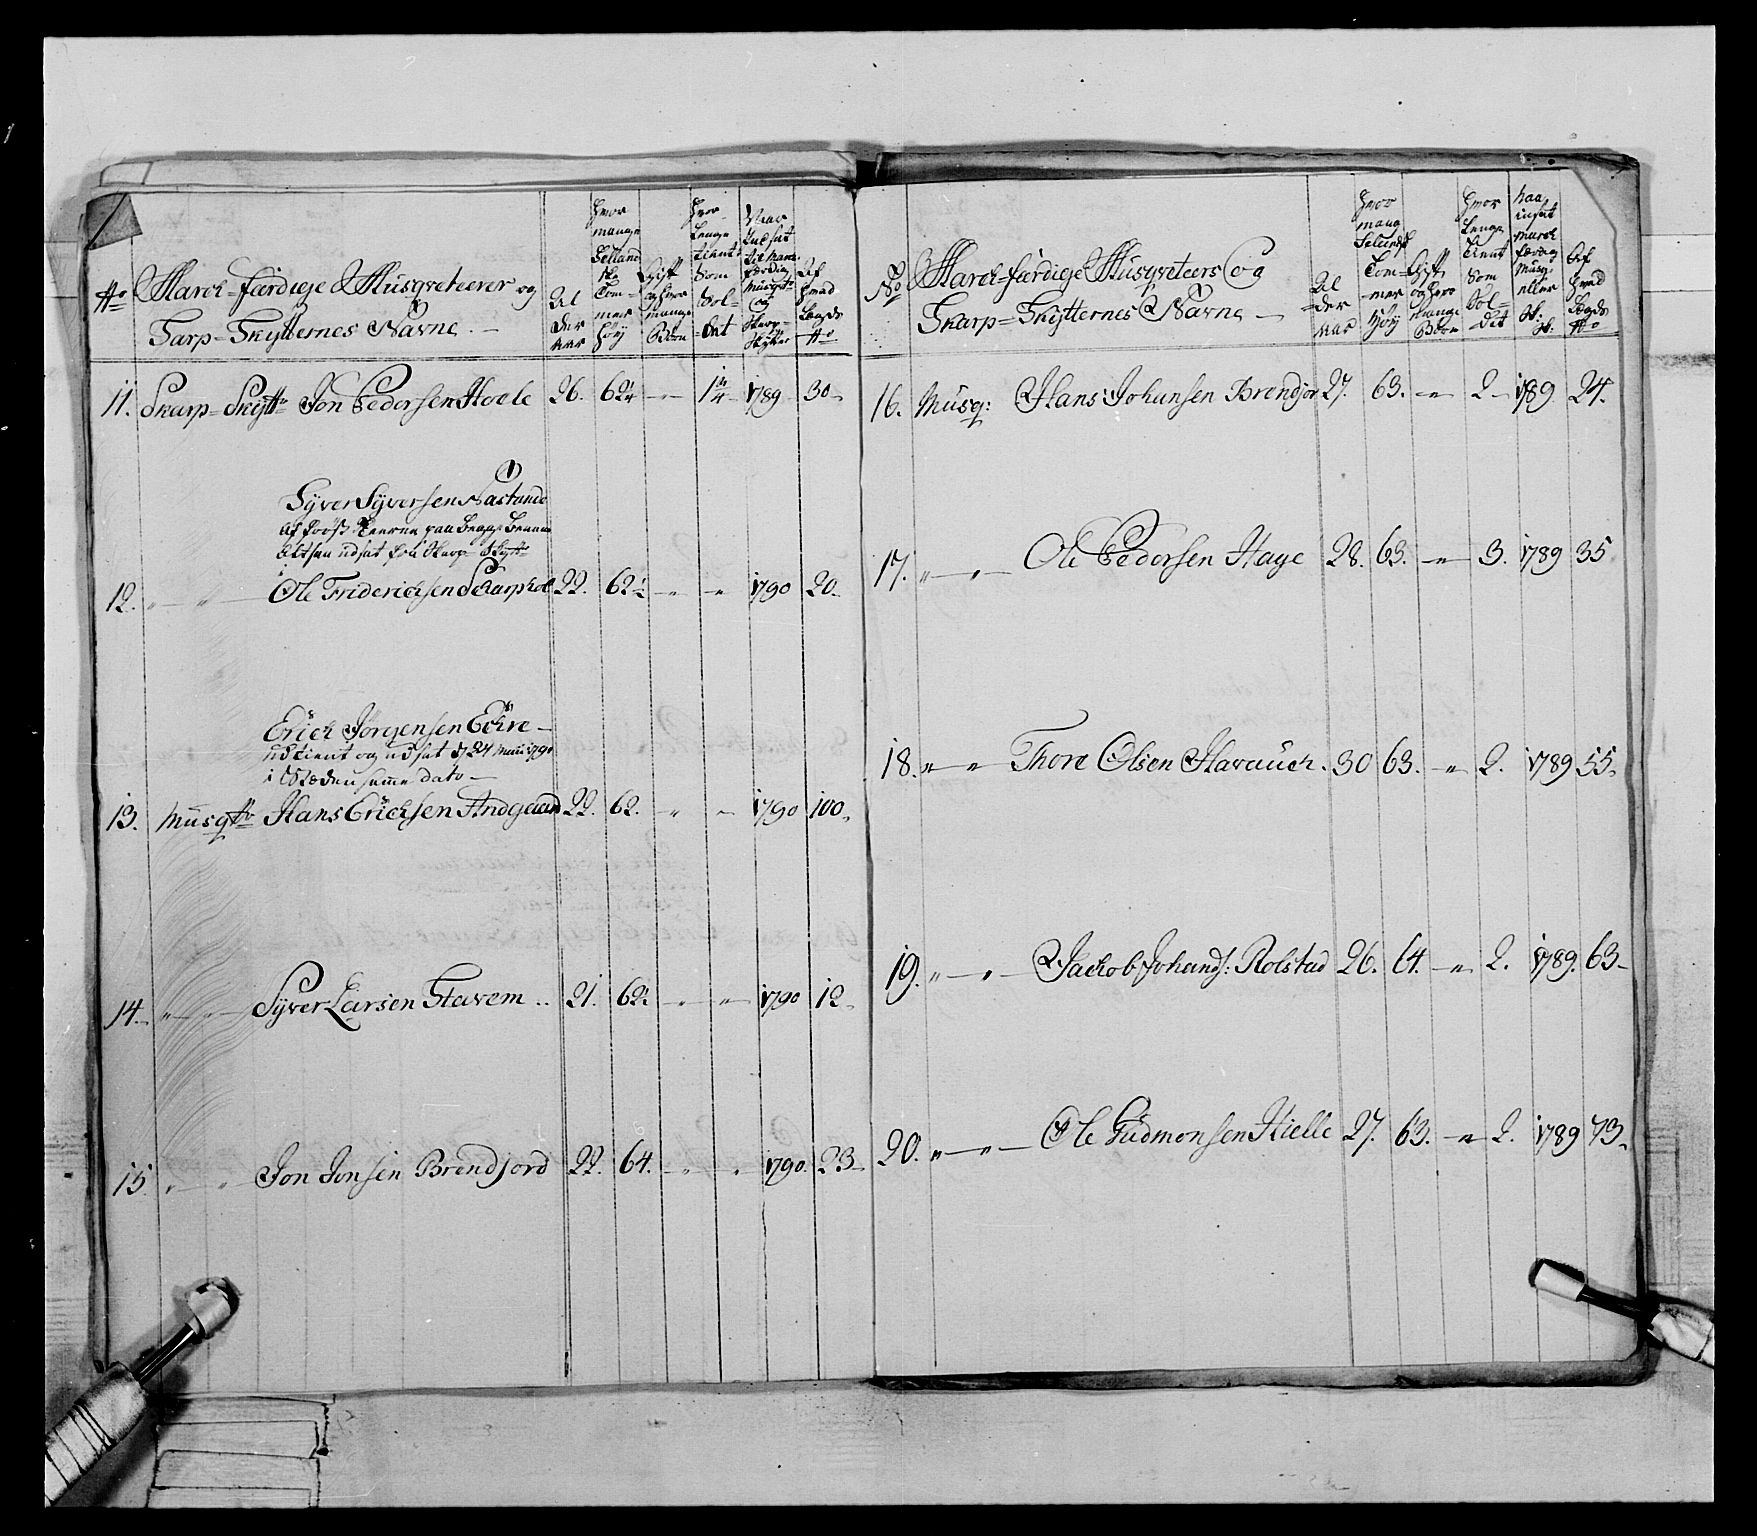 No March-færdige Musqveteerer og
Skarp-Skytternes Navne. —
Al
der
aar
Hvor
mange
Selland
ske
Tom-
mer
høy
Gift
og hvor
mange
Børn
Hvor
Lenge
tient
Som
Sol-
dat
Naar
Indsat
til March
færdig
Musqtr
og
Skarp-
Skytter
Af
hvad
Lægds
No
11. Skarp-Skyttr Jon Pedersen Hoele 26. 62 1/4 — 1 3/4 1789 30
Syver Syversen Nastande
Ole Friderichsen Skarphol
12. " " 22. 62 1/2 " " 1790 20
Erich Jørgensen Echre —
udtient og udsat d 24 Maii 1790
i Stæden samme dato —
13. Musqtr Hans Erichsen Andgaard 22. 62. " " 1790 100
14. " " Syver Larsen Stavem 21. 62 " " 1790 12
15. " " Jon Jonsen Brendjord 22. 64. " " 1790. 23
No March-færdige Musqveteers og
Skarp-Skytternes Navne —
Al
-der
aar
Hvor
mang
Selands
Tom-
-mer
høy
Gift
og hvor
mange
Børn
Hvor
Lenge
tient
Som
Sol-
-dat
Naar
insat
March
færdig
Musq:
eller
Sk:
Sk:
Af
hvad
Lægds
No
16. Musq: Hans Johansen Brendjor 27. 63. " 2 1789 24.
17. " " Ole Pedersen Hage 28. 63. " 3. 1789 35
18. " " Thore Olsen Haraueh. 30 63. " 2. 1789 55.
19. " " Jachob Johands: Rolstad 26. 64. " 2. 1789. 63
20. " " Ole Gudmonsen Hielle 27. 63. " 2. 1789 73